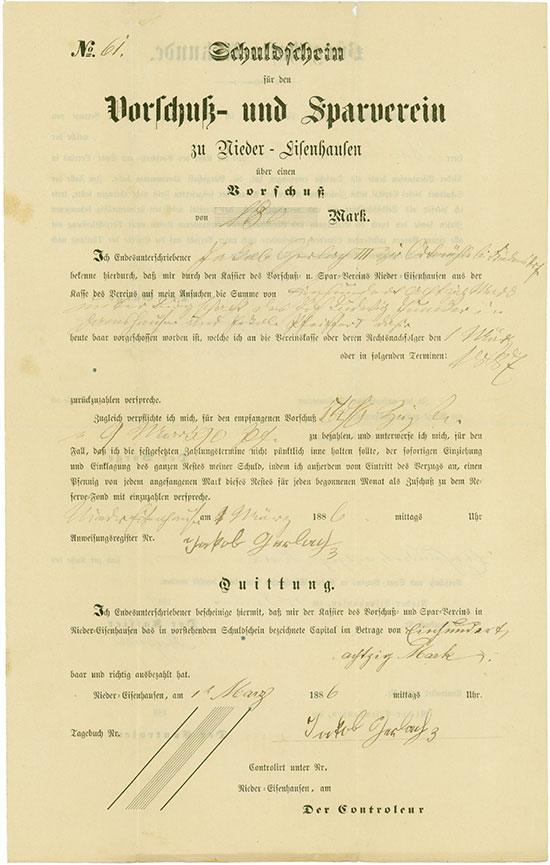 No. 61.
Schuldschein
für den
Vorschuß- und Sparverein
zu Nieder-Eisenhausen
über einen
Vorschuß
von 180 Mark.
Ich Endesunterschriebener Jakob Gerlach III
bekenne hierdurch, daß mir durch den Kassier des Vorschuß- u. Spar-Vereins Nieder-Eisenhausen aus der
Kasse des Vereins auf mein Ansuchen die Summe von
und
heute baar vorgeschossen worden ist, welche ich an die Vereinskasse oder deren Rechtsnachfolger den 1 März
oder in folgenden Terminen: 1887
zurückzuzahlen verspreche.
Zugleich verpflichte ich mich, für den empfangenen Vorschuß
9 Mark zu bezahlen, und unterwerfe ich mich, für den
Fall, daß ich die festgesetzten Zahlungstermine nicht pünktlich inne halten sollte, der sofortigen Einziehung
und Einklagung des ganzen Restes meiner Schuld, indem ich außerdem vom Eintritt des Verzugs an, einen
Pfennig von jedem angefangenen Mark dieses Restes für jeden begonnenen Monat als Zuschuß zu dem Re-
serve-Fond mit einzuzahlen verspreche.
Niedereisenhausen am 1 März 1886 mittags Uhr
Anweisungsregister Nr. Jakob Gerlach 3
Quittung.
Ich Endesunterschriebener bescheinige hiermit, daß mir der Kassier des Vorschuß- und Spar-Vereins in
Nieder-Eisenhausen das in vorstehendem Schuldschein bezeichnete Capital im Betrage von Einhundert
achtzig Mark
baar und richtig ausbezahlt hat.
Nieder-Eisenhausen, am 1 März 1886 mittags Uhr.
Tagebuch Nr. Jakob Gerlach 3
Controlirt unter Nr.
Nieder-Eisenhausen, am
Der Controleur